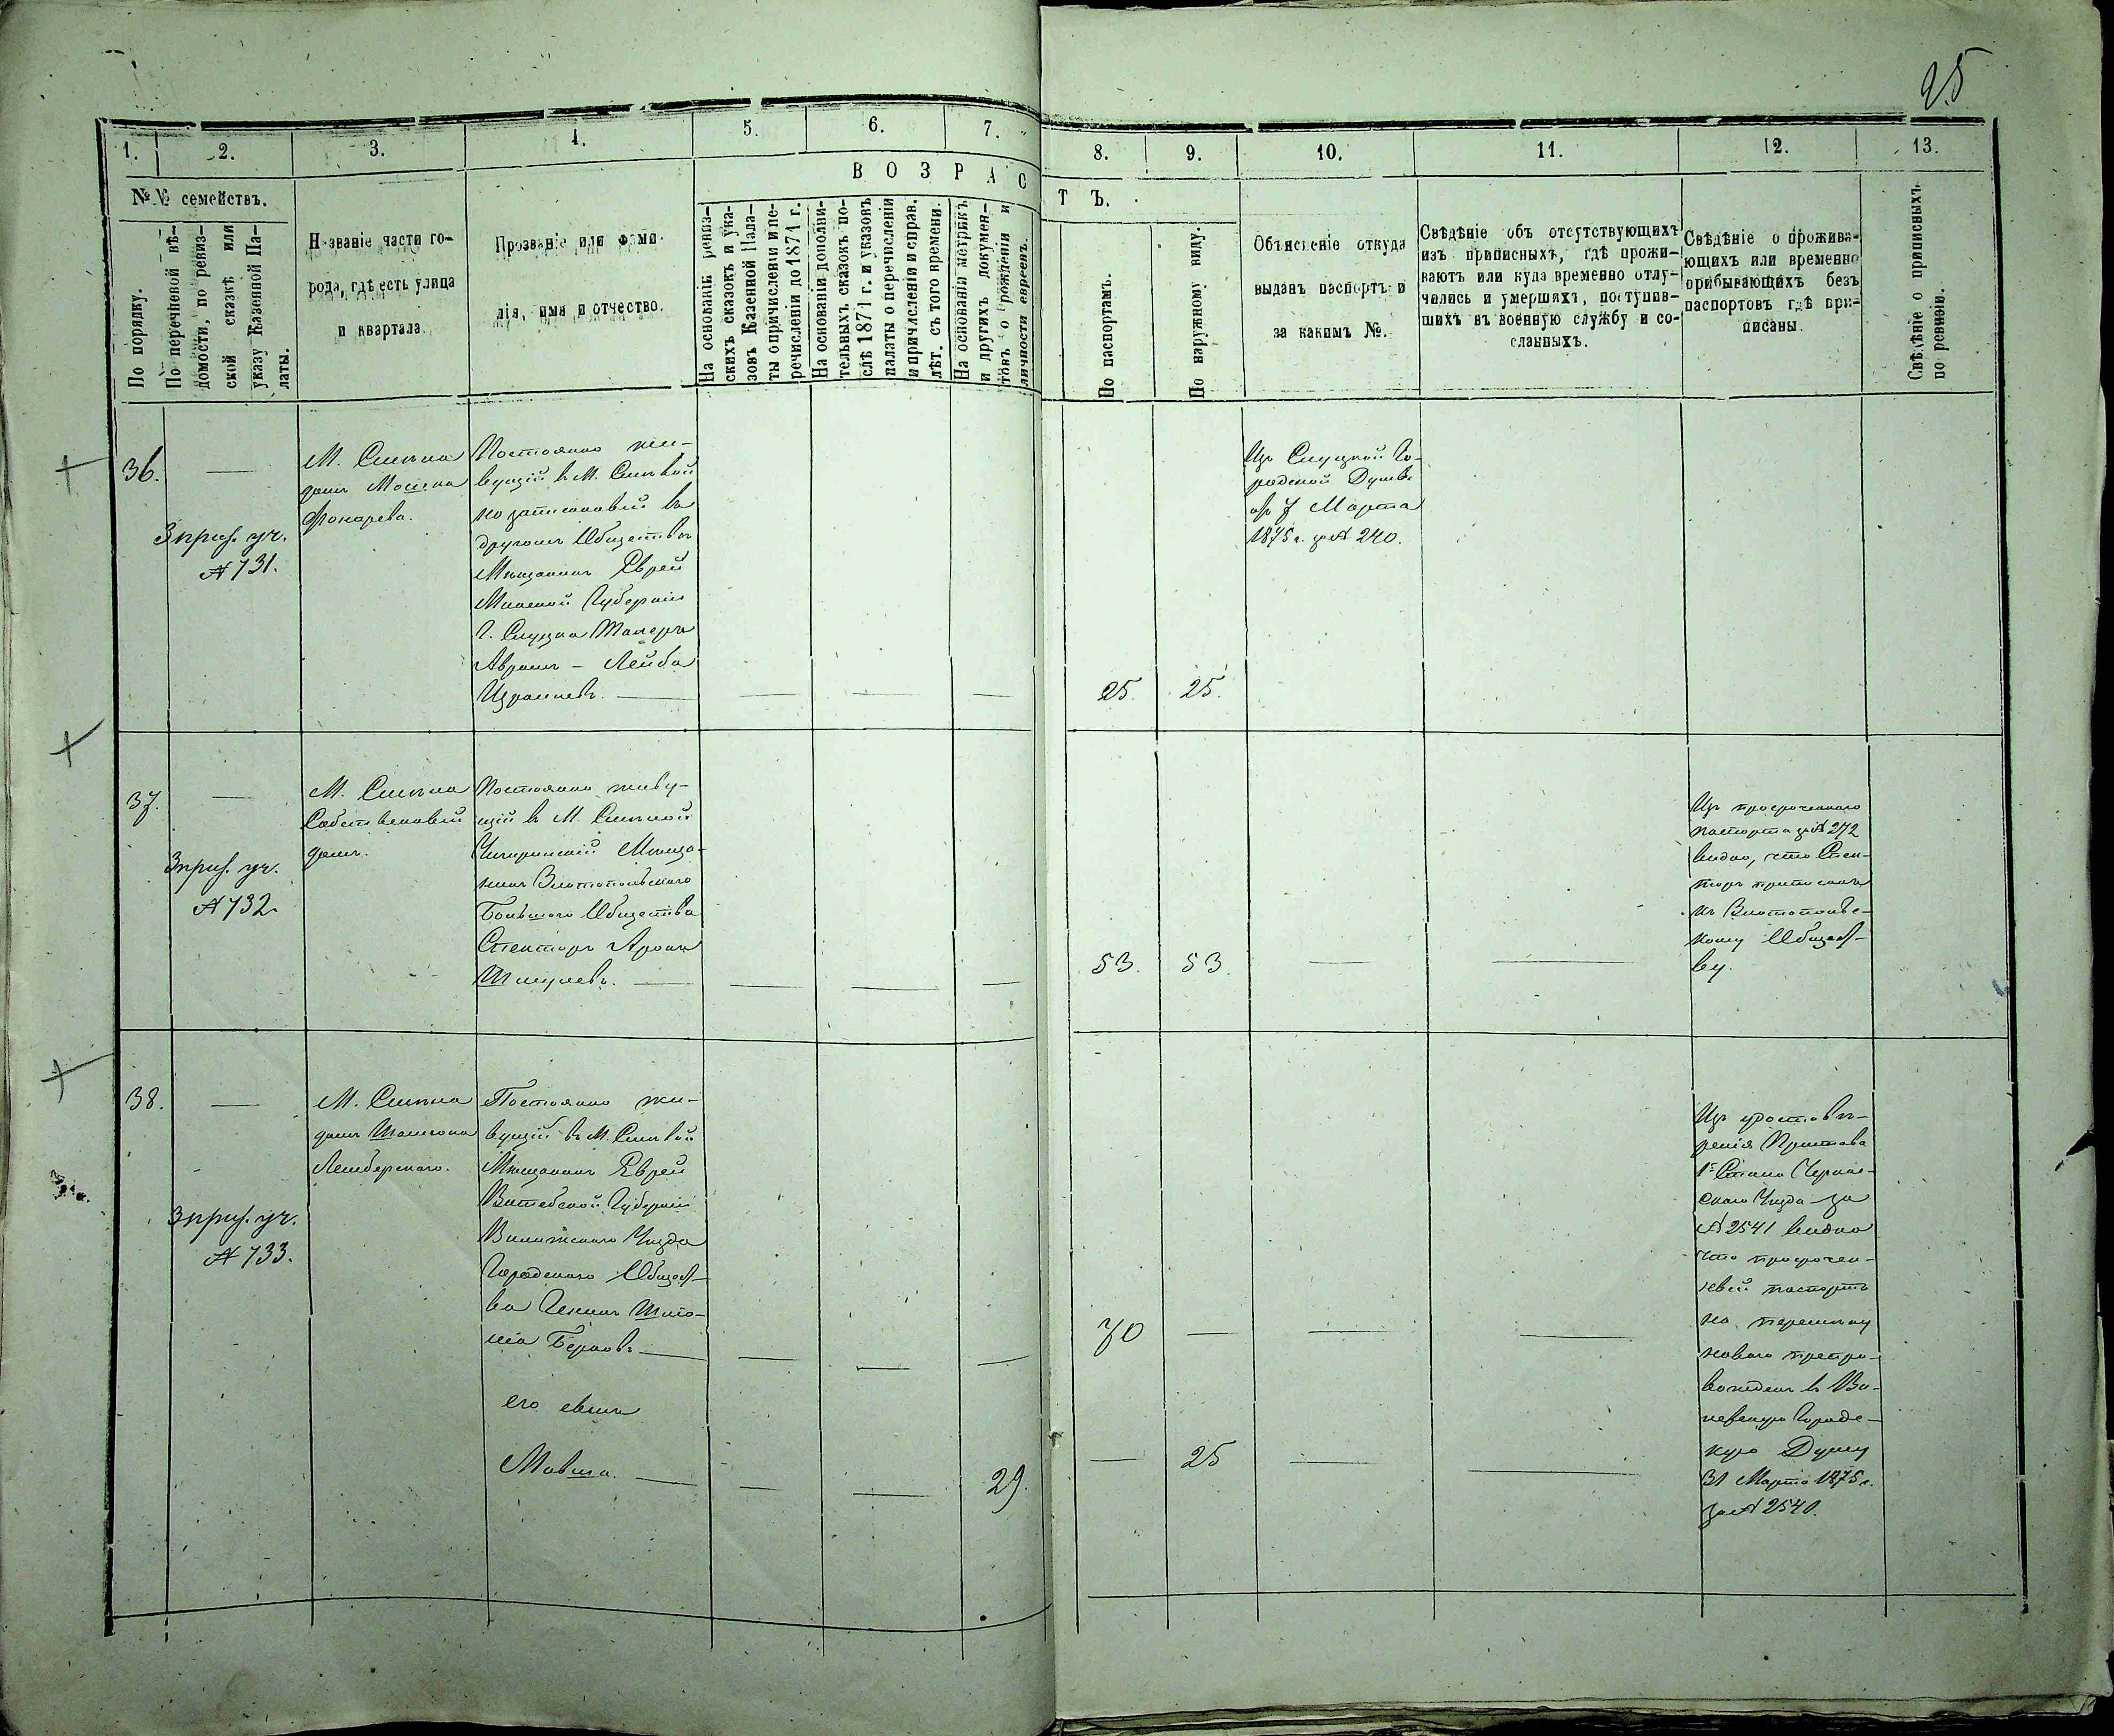 25
1.
2.
3.
4.
5.
6.
7.
8.
9.
10.
11.
12.
13.
№№ семействъ.
По порядку.
По перечневой вѣ-
домости, по ревиз-
ской сказкѣ или
указу Казенной Па-
латы.
Названіе части го-
рода, гдѣ есть улица
и квартала.
Прозваніе или фами-
лія, имя и отчество.
ВОЗРАС
ТЪ.
На основаніи ревиз-
скихъ сказокъ и ука-
зовъ Казенной Пала-
ты о причисленіи и пе-
речисленіи до 1871 г.
На основаніи дополни-
тельныхъ сказокъ по-
слѣ 1871 г. и указовъ
палаты о перечисленіи
и причисленіи и справ.
лѣт. съ того времени.
На основаніи метрикъ
и другихъ докумен-
товъ о рожденіи и
личности евреевъ.
По паспортамъ.
По наружному виду.
Объясненіе откуда
выданъ паспортъ и
за какимъ №.
Свѣдѣніе объ отсутствующихъ
изъ приписныхъ, гдѣ прожи-
ваютъ или куда временно отлу-
чились и умершихъ, поступив-
шихъ въ военную службу и со-
сланныхъ.
Свѣдѣніе о прожива-
ющихъ или временно
прибывающихъ безъ
паспортовъ гдѣ при-
писаны.
Свѣдѣніе о приписныхъ
по ревизіи.
36.
3 приз. уч.
№ 731.
М. Смѣла
домъ Мошка
Фонарева.
Постоянно жи-
вущій въ М. Смѣлой
но записанный въ
другомъ Обществѣ
Мѣщанинъ Еврей
Минской Губерніи
Г. Слуцка
Абрамъ - Лейба
Израилевъ.
25.
25.
Изъ Слуцкой Го-
родской Думы
отъ 7 Марта
1875 г. за № 240.
37.
3 приз. уч.
№ 732.
М. Смѣла
Собственный
домъ.
Постоянно живу-
щій въ М. Смѣлой
Чигиринскій Мѣща-
нинъ Златопольскаго
Большаго Общества
Спекторъ Аронъ
Шмулевъ.
53.
53.
Изъ просроченнаго
паспорта за № 272
видно, что Спек-
торъ приписанъ
къ Златопольс-
кому Общест-
ву.
38.
3 приз. уч.
№ 733.
М. Смѣла
домъ
Лембергскаго.
Постоянно жи-
вущій въ М. Смѣлой
Мѣщанинъ Еврей
Витебской Губерніи
Велижскаго Уѣзда
Городскаго Общест-
ва Генинъ Шло-
ма Берковъ
70
его сынъ
Мовша.
29.
25
Изъ удостовѣ-
ренія Пристава
1го Стана Черкас-
скаго Уѣзда за
№ 2541 видно
что просрочен-
ный паспортъ
на перемѣну
новаго препро-
вожденъ въ Ве-
Городс-
кую Думу
31 Марта 1875 г.
за № 2540.